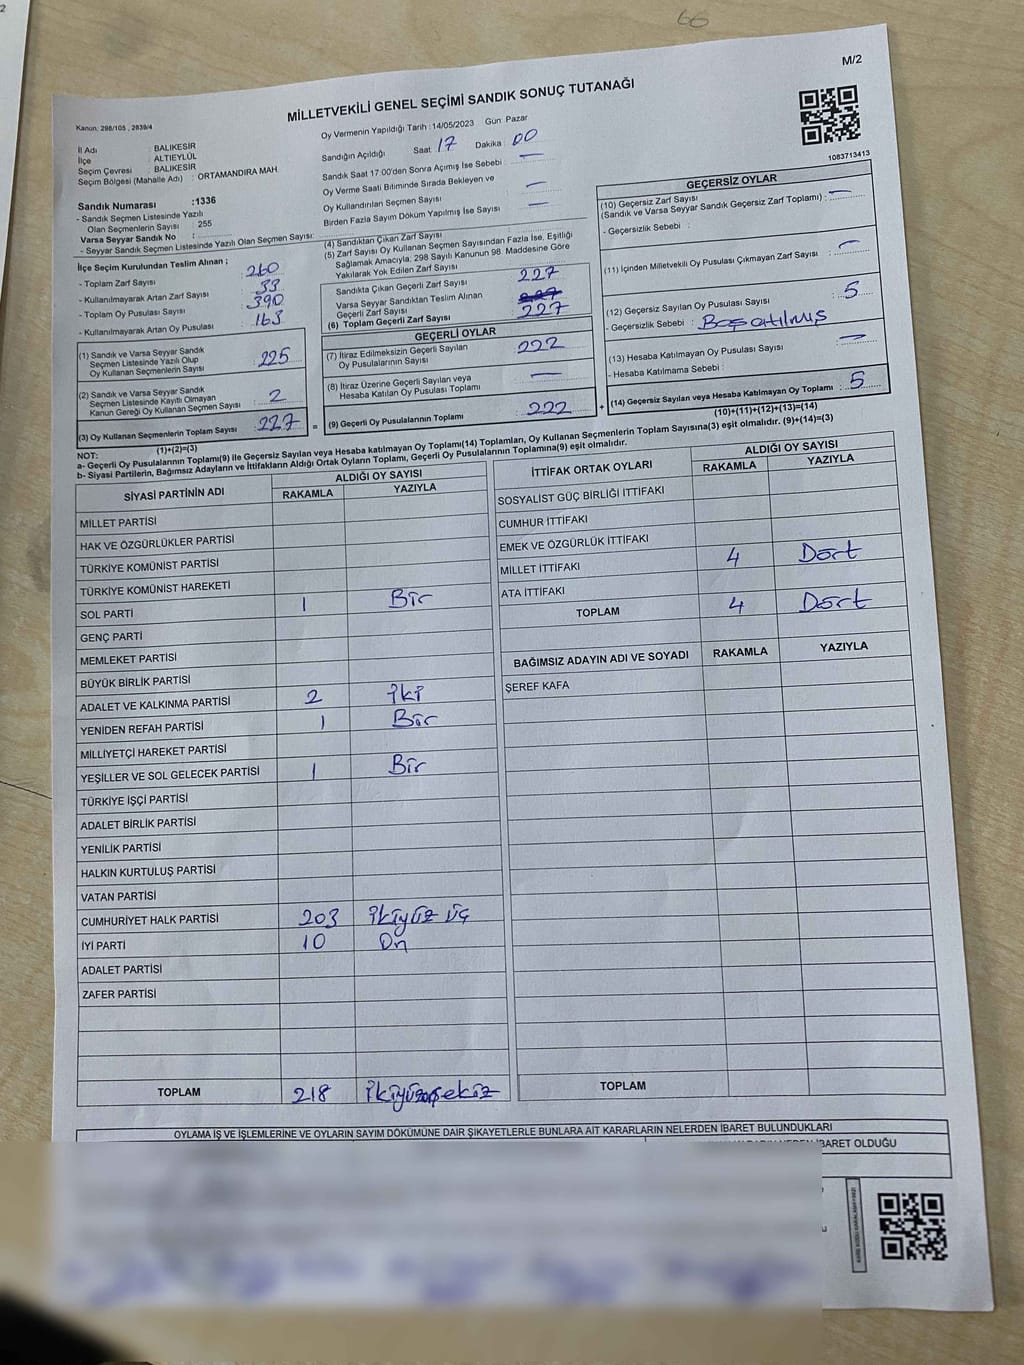 2
66
M/2
MİLLETVEKİLİ GENEL SEÇİMİ SANDIK SONUÇ TUTANAĞI
Kanun: 298/105 , 2839/4
Oy Vermenin Yapıldığı Tarih : 14/05/2023 Gün: Pazar
1083713413
İl Adı : BALIKESİR
İlçe : ALTIEYLÜL
Seçim Çevresi : BALIKESİR
Seçim Bölgesi (Mahalle Adı) : ORTAMANDIRA MAH.
Sandık Numarası : 1336
- Sandık Seçmen Listesinde Yazılı
Olan Seçmenlerin Sayısı : 255
Varsa Seyyar Sandık No :
- Seyyar Sandık Seçmen Listesinde Yazılı Olan Seçmen Sayısı:
Sandığın Açıldığı Saat 17 Dakika 00
Sandık Saat 17:00'den Sonra Açımış İse Sebebi : —
Oy Verme Saati Bitiminde Sırada Bekleyen ve
Oy Kullandırılan Seçmen Sayısı : —
Birden Fazla Sayım Döküm Yapılmış İse Sayısı : —
İlçe Seçim Kurulundan Teslim Alınan ;
- Toplam Zarf Sayısı : 260
- Kullanılmayarak Artan Zarf Sayısı : 33
- Toplam Oy Pusulası Sayısı : 390
- Kullanılmayarak Artan Oy Pusulası : 163
(1) Sandık ve Varsa Seyyar Sandık
Seçmen Listesinde Yazılı Olup
Oy Kullanan Seçmenlerin Sayısı : 225
(2) Sandık ve Varsa Seyyar Sandık
Seçmen Listesinde Kayıtlı Olmayan
Kanun Gereği Oy Kullanan Seçmen Sayısı : 2
(3) Oy Kullanan Seçmenlerin Toplam Sayısı : 227
(1)+(2)=(3)
(4) Sandıktan Çıkan Zarf Sayısı
(5) Zarf Sayısı Oy Kullanan Seçmen Sayısından Fazla İse, Eşitliği
Sağlamak Amacıyla; 298 Sayılı Kanunun 98. Maddesine Göre
Yakılarak Yok Edilen Zarf Sayısı :
Sandıkta Çıkan Geçerli Zarf Sayısı : 227
Varsa Seyyar Sandıktan Teslim Alınan
Geçerli Zarf Sayısı
(6) Toplam Geçerli Zarf Sayısı : 227
GEÇERLİ OYLAR
(7) İtiraz Edilmeksizin Geçerli Sayılan
Oy Pusulalarının Sayısı : 222
(8) İtiraz Üzerine Geçerli Sayılan veya
Hesaba Katılan Oy Pusulası Toplamı : —
= (9) Geçerli Oy Pusulalarının Toplamı : 222 +
GEÇERSİZ OYLAR
(10) Geçersiz Zarf Sayısı
(Sandık ve Varsa Seyyar Sandık Geçersiz Zarf Toplamı) : —
- Geçersizlik Sebebi :
(11) İçinden Milletvekili Oy Pusulası Çıkmayan Zarf Sayısı : —
(12) Geçersiz Sayılan Oy Pusulası Sayısı : 5
- Geçersizlik Sebebi : Boş atılmış
(13) Hesaba Katılmayan Oy Pusulası Sayısı : —
- Hesaba Katılmama Sebebi :
(14) Geçersiz Sayılan veya Hesaba Katılmayan Oy Toplamı : 5
(10)+(11)+(12)+(13)=(14)
NOT:
a- Geçerli Oy Pusulalarının Toplamı(9) ile Geçersiz Sayılan veya Hesaba katılmayan Oy Toplamı(14) Toplamları, Oy Kullanan Seçmenlerin Toplam Sayısına(3) eşit olmalıdır. (9)+(14)=(3)
b- Siyasi Partilerin, Bağımsız Adayların ve İttifakların Aldığı Ortak Oyların Toplamı, Geçerli Oy Pusulalarının Toplamına(9) eşit olmalıdır.
SİYASİ PARTİNİN ADI ALDIĞI OY SAYISI
RAKAMLA YAZIYLA
MİLLET PARTİSİ
HAK VE ÖZGÜRLÜKLER PARTİSİ
TÜRKİYE KOMÜNİST PARTİSİ
TÜRKİYE KOMÜNİST HAREKETİ
SOL PARTİ 1 Bir
GENÇ PARTİ
MEMLEKET PARTİSİ
BÜYÜK BİRLİK PARTİSİ
ADALET VE KALKINMA PARTİSİ 2 iki
YENİDEN REFAH PARTİSİ 1 Bir
MİLLİYETÇİ HAREKET PARTİSİ
YEŞİLLER VE SOL GELECEK PARTİSİ 1 Bir
TÜRKİYE İŞÇİ PARTİSİ
ADALET BİRLİK PARTİSİ
YENİLİK PARTİSİ
HALKIN KURTULUŞ PARTİSİ
VATAN PARTİSİ
CUMHURİYET HALK PARTİSİ 203 ikiyüz üç
İYİ PARTİ 10 On
ADALET PARTİSİ
ZAFER PARTİSİ
TOPLAM 218 ikiyüzonsekiz
İTTİFAK ORTAK OYLARI ALDIĞI OY SAYISI
RAKAMLA YAZIYLA
SOSYALİST GÜÇ BİRLİĞİ İTTİFAKI
CUMHUR İTTİFAKI
EMEK VE ÖZGÜRLÜK İTTİFAKI
MİLLET İTTİFAKI 4 Dört
ATA İTTİFAKI
TOPLAM 4 Dört
BAĞIMSIZ ADAYIN ADI VE SOYADI RAKAMLA YAZIYLA
ŞEREF KAFA
TOPLAM
OYLAMA İŞ VE İŞLEMLERİNE VE OYLARIN SAYIM DÖKÜMÜNE DAİR ŞİKAYETLERLE BUNLARA AİT KARARLARIN NELERDEN İBARET BULUNDUKLARI
İBARET OLDUĞU